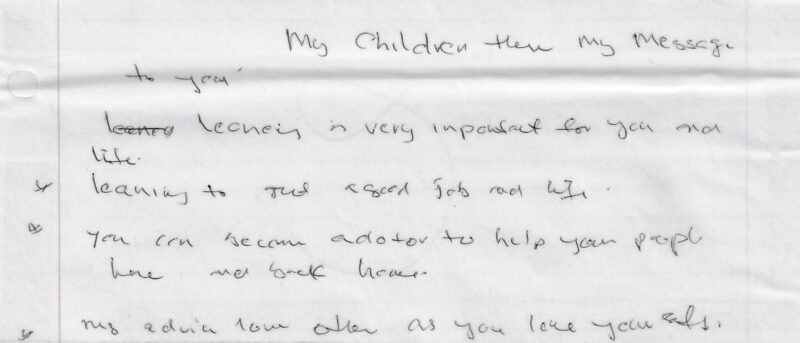 My Children then My Message
to you
learning is very inportact for you and
life.
leaning to a good job and life.
you can become a dotor to help your peopl
here and back home.
my advic love other as you love yourselfs.